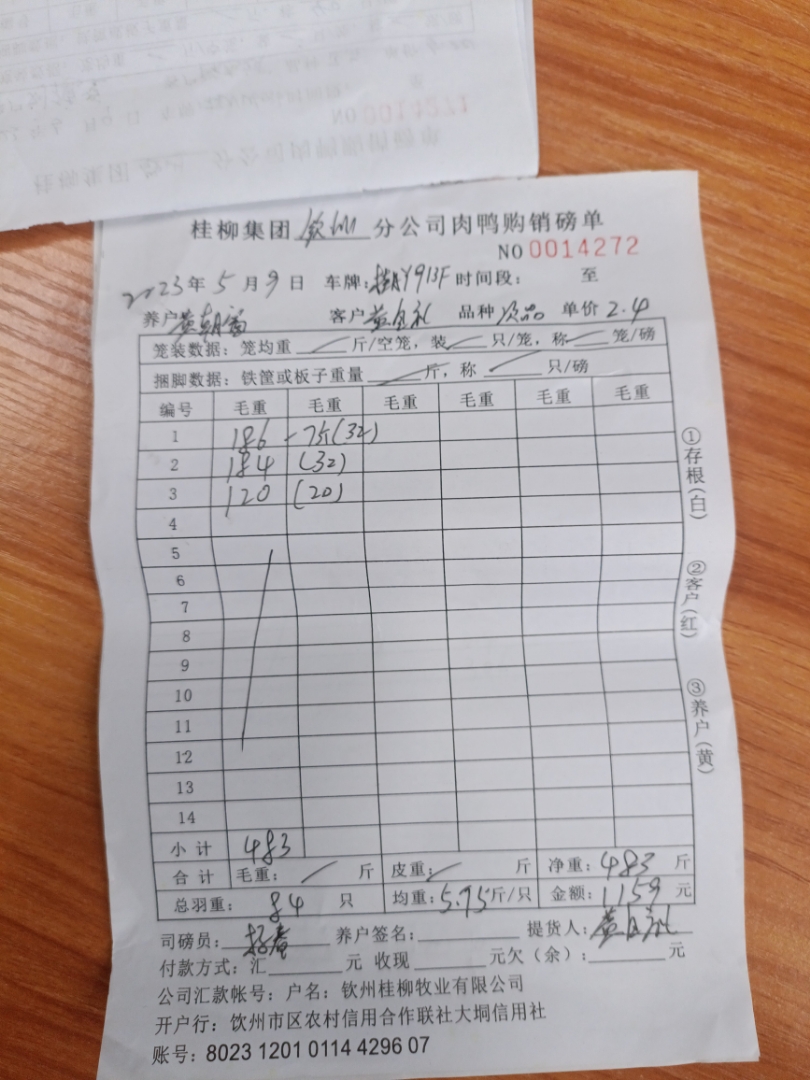 NO 0014271
桂柳集团 钦州 分公司肉鸭购销磅单
NO 0014272
2023年 5 月 9 日 车牌: Y913F 时间段: 至
养户 黄朝富 客户 黄 礼 品种 次品 单价 2.4
笼装数据: 笼均重 斤/空笼, 装 只/笼, 称 笼/磅
捆脚数据: 铁筐或板子重量 斤, 称 只/磅
编号 毛重 毛重 毛重 毛重 毛重 毛重
1 186 -7斤(32)
2 184 (32)
3 120 (20)
4
5
6
7
8
9
10
11
12
13
14
小计 483
合计 毛重: 斤 皮重: 斤 净重: 483 斤
总羽重: 84 只 均重: 5.75斤/只 金额: 1159 元
司磅员: 养户签名: 提货人: 黄 礼
付款方式: 汇 元 收现 元欠(余): 元
公司汇款帐号: 户名: 钦州桂柳牧业有限公司
开户行: 饮州市区农村信用合作联社大垌信用社
账号: 8023 1201 0114 4296 07
①存根(白)
②客户(红)
③养户(黄)